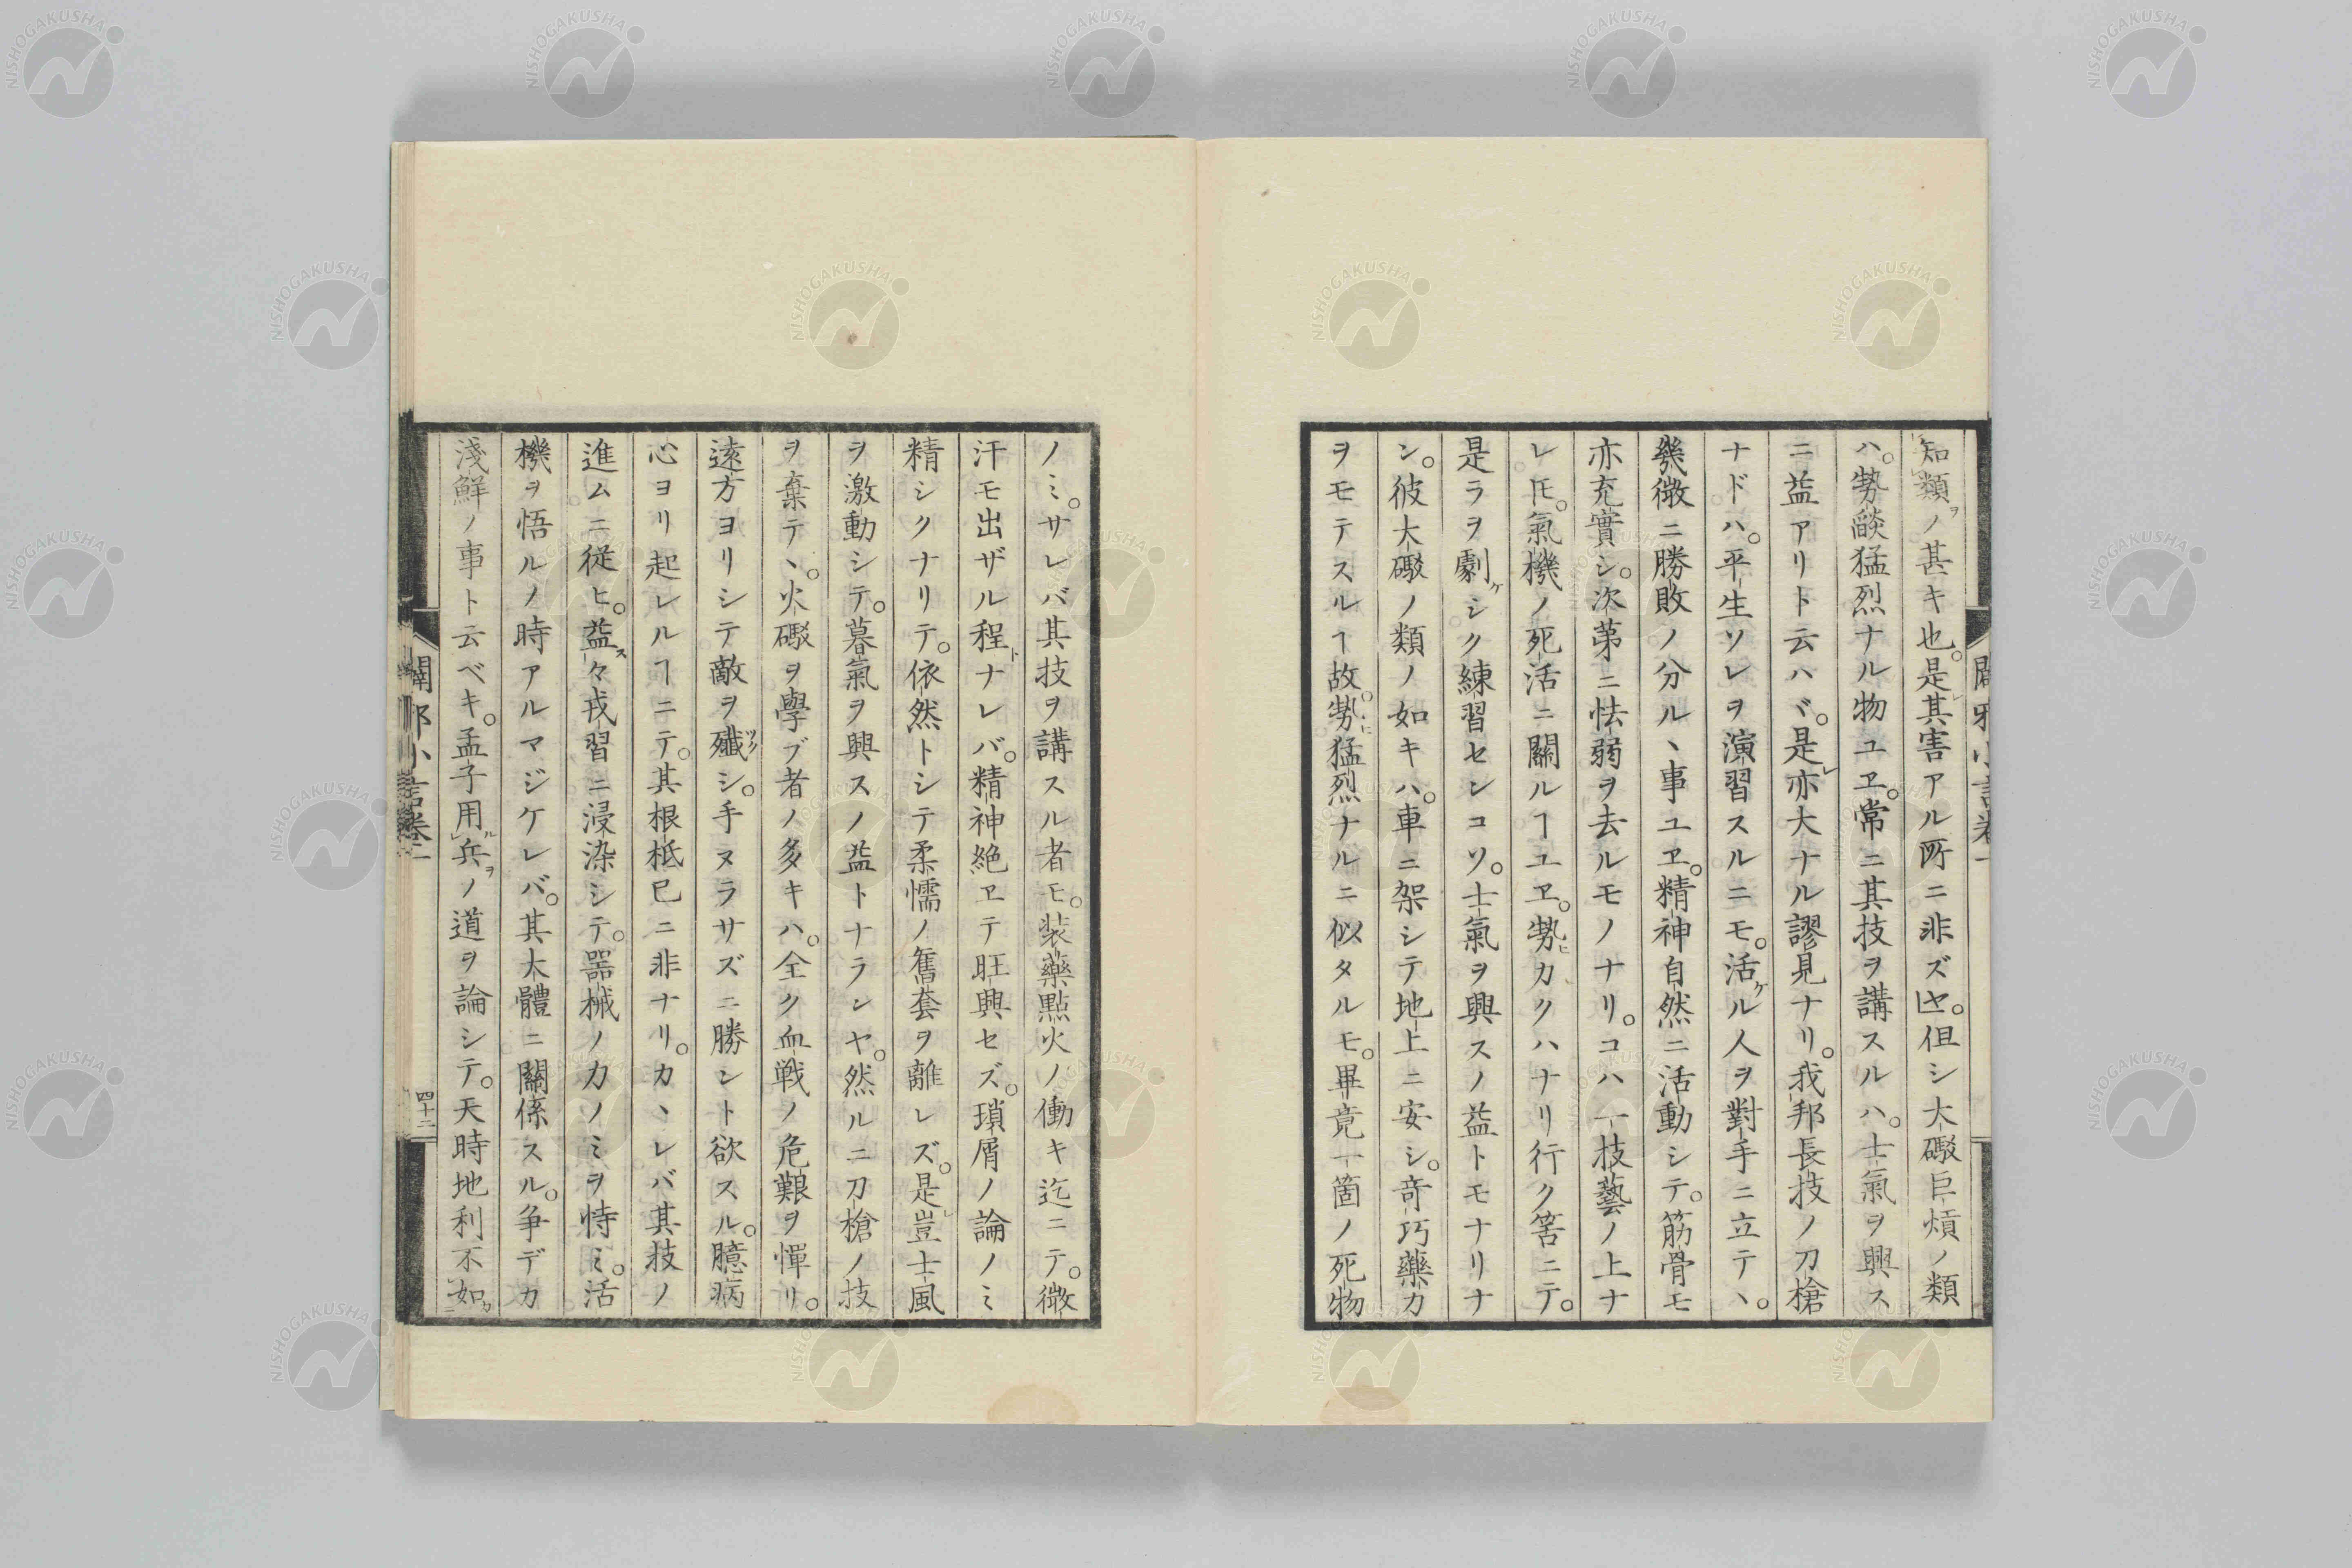 知類ノ甚キ也。是其害アル所ニ非ズヤ。但シ大礮巨熕ノ類
ハ。勢燄猛烈ナル物ユヱ。常ニ其技ヲ講スルハ。士氣ヲ興ス
ニ益アリト云ハヾ。是亦大ナル謬見ナリ。我邦長技ノ刀槍
ナドハ。平生ソレヲ演習スルニモ。活ル人ヲ對手ニ立テヽ。
幾微ニ勝敗ノ分ルヽ事ユヱ。精神自然ニ活動シテ。筋骨モ
亦充實シ。次第ニ怯弱ヲ去ルモノナリ。コハ一技藝ノ上ナ
レ𪜈。氣機ノ死活ニ關ルヿユヱ。勢ヒカクハナリ行ク筈ニテ。
是ラヲ劇シク練習センコソ。士氣ヲ興スノ益トモナリナ
ン。彼大礮ノ類ノ如キハ。車ニ架シテ地上ニ安シ。奇巧藥力
ヲモテスルヿ故。勢猛烈ナルニ似タルモ。畢竟一箇ノ死物
ノミ。サレバ其技ヲ講スル者モ。装藥點火ノ働キ迄ニテ。微
汗モ出ザル程ナレバ。精神絶ヱテ旺興セズ。瑣屑ノ論ノミ
精シクナリテ。依然トシテ柔懦ノ舊套ヲ離レズ。是豈士風
ヲ激動シテ。暮氣ヲ興スノ益トナランヤ。然ルニ刀槍ノ技
ヲ棄テヽ。火礮ヲ學ブ者ノ多キハ。全ク血戦ノ危艱ヲ憚リ。
遠方ヨリシテ敵ヲ殲シ。手ヌラサズニ勝ント欲スル。臆病
心ヨリ起レルヿニテ。其根柢已ニ非ナリ。カヽレバ其技ノ
進ムニ従ヒ。益々戎習ニ浸染シテ。器械ノ力ノミヲ恃ミ。活
機ヲ悟ルノ時アルマジケレバ。其大體ニ關係スル。争デカ
淺鮮ノ事ト云ベキ。孟子用兵ノ道ヲ論シテ。天時地利不如
闢邪小言卷二
四十二